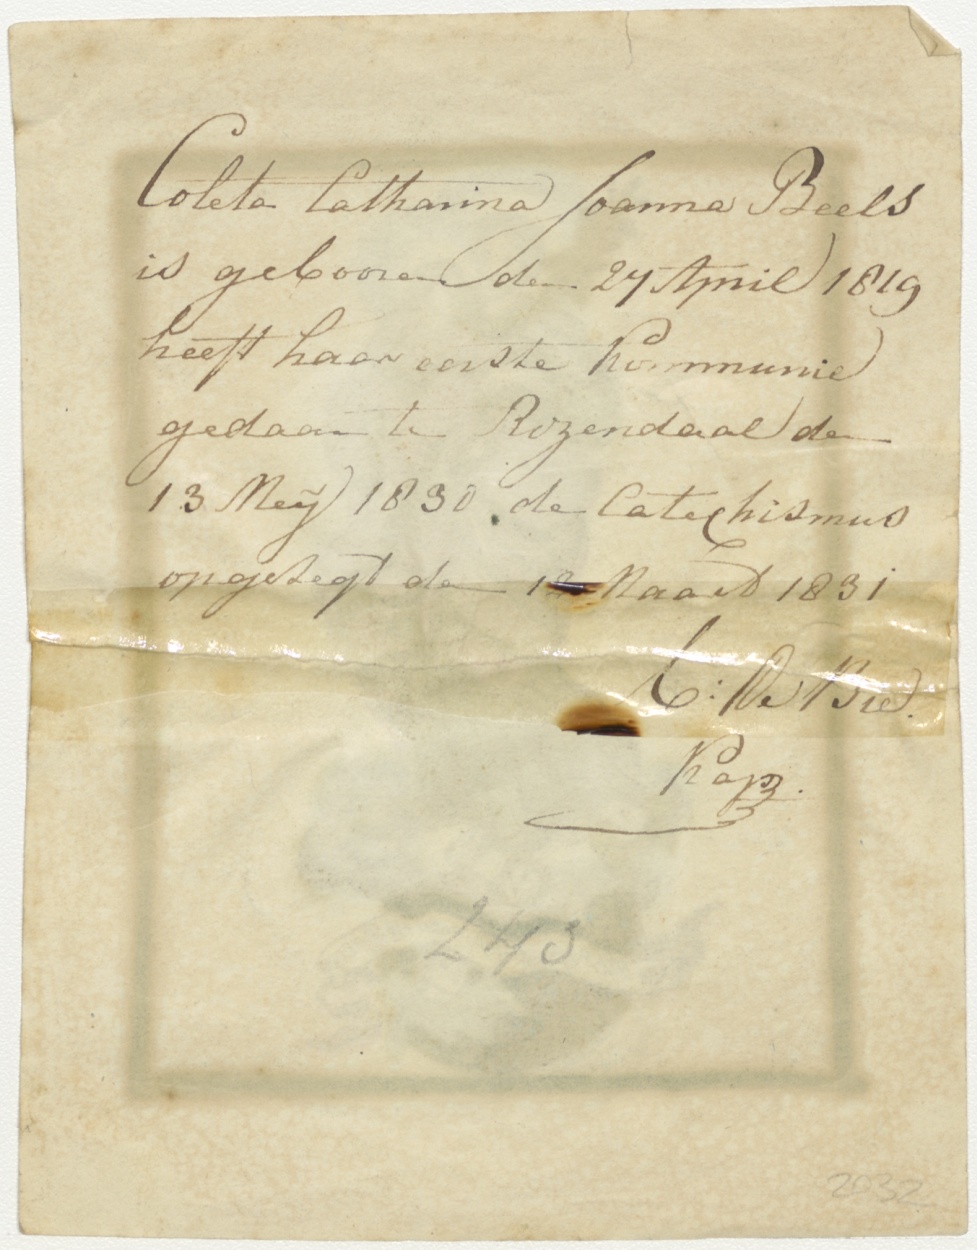 Coleta Catharina Joanna Beels
is gebooren den 27 April 1819
heeft haar eerste Kommunie
gedaan te Rozendaal den
13 Meÿ 1830 de Catechismus
opgezegt den Maart 1831
C: De Bie.
Kap.
243
2032